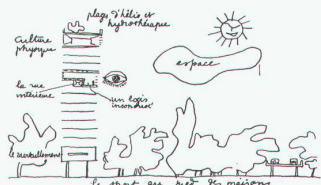 plage d'hélio et
hydrothérapie
Culture
physique
espace
la rue
intérieure
un logis
insonorisé
le sport au pied des maisons